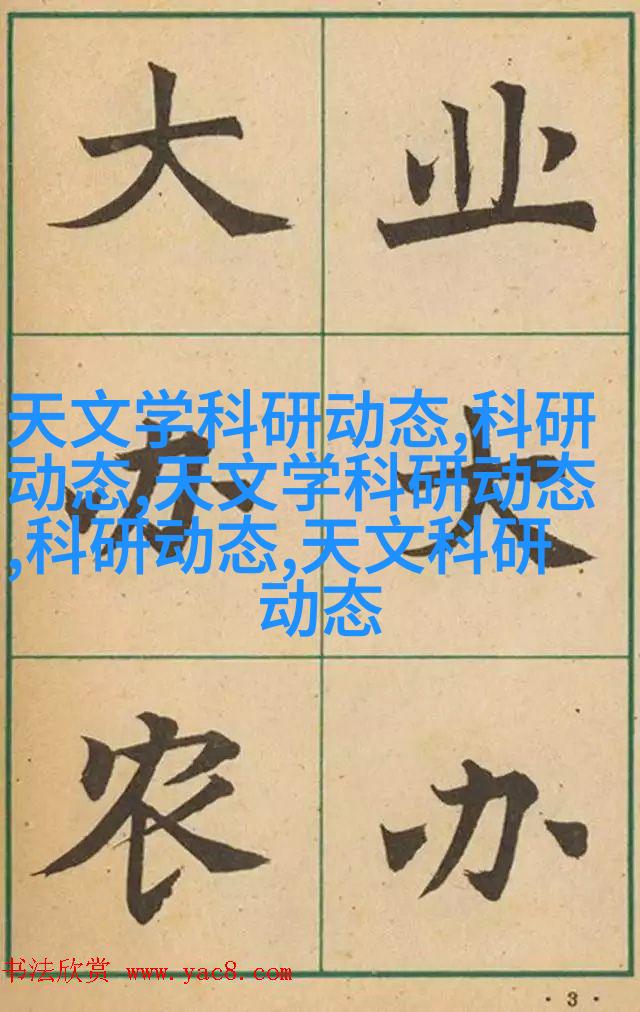 大办农
业大办
天文学科研动态,科研
动态,天文学科研动态
,科研动态,天文科研
动态
书法欣赏 www.yac8.com
·3·